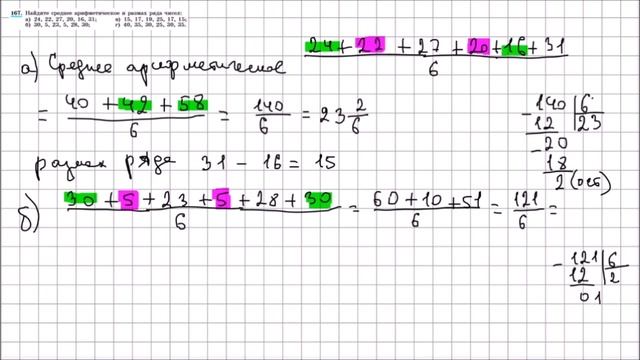 167. Найдите среднее арифметическое и размах ряда чисел:
а) 24, 22, 27, 20, 16, 31; в) 15, 17, 19, 25, 17, 15;
б) 30, 5, 23, 5, 28, 30; г) 40, 35, 30, 25, 30, 35.
24 + 22 + 27 + 20 + 16 + 31
6
а) Среднее арифметическое
= 40 + 42 + 58 / 6 = 140 / 6 = 23 2/6
- 140 | 6
12 | 23
- 20
18
2 (ост)
размах ряда 31 - 16 = 15
б) 30 + 5 + 23 + 5 + 28 + 30 / 6 = 60 + 10 + 51 / 6 = 121 / 6 =
- 121 | 6
12 | 2
01